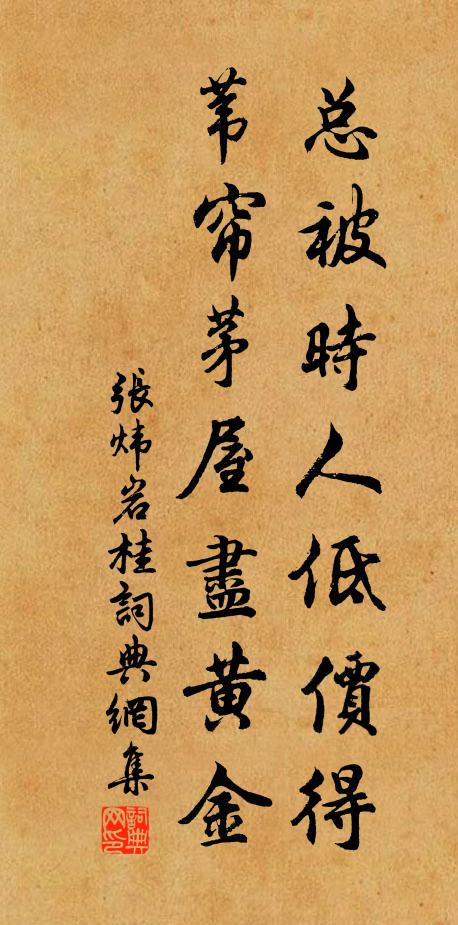 总被時人低價得
苇帘茅屋盡黄金
張炜岩桂詞典網集
詞典网印